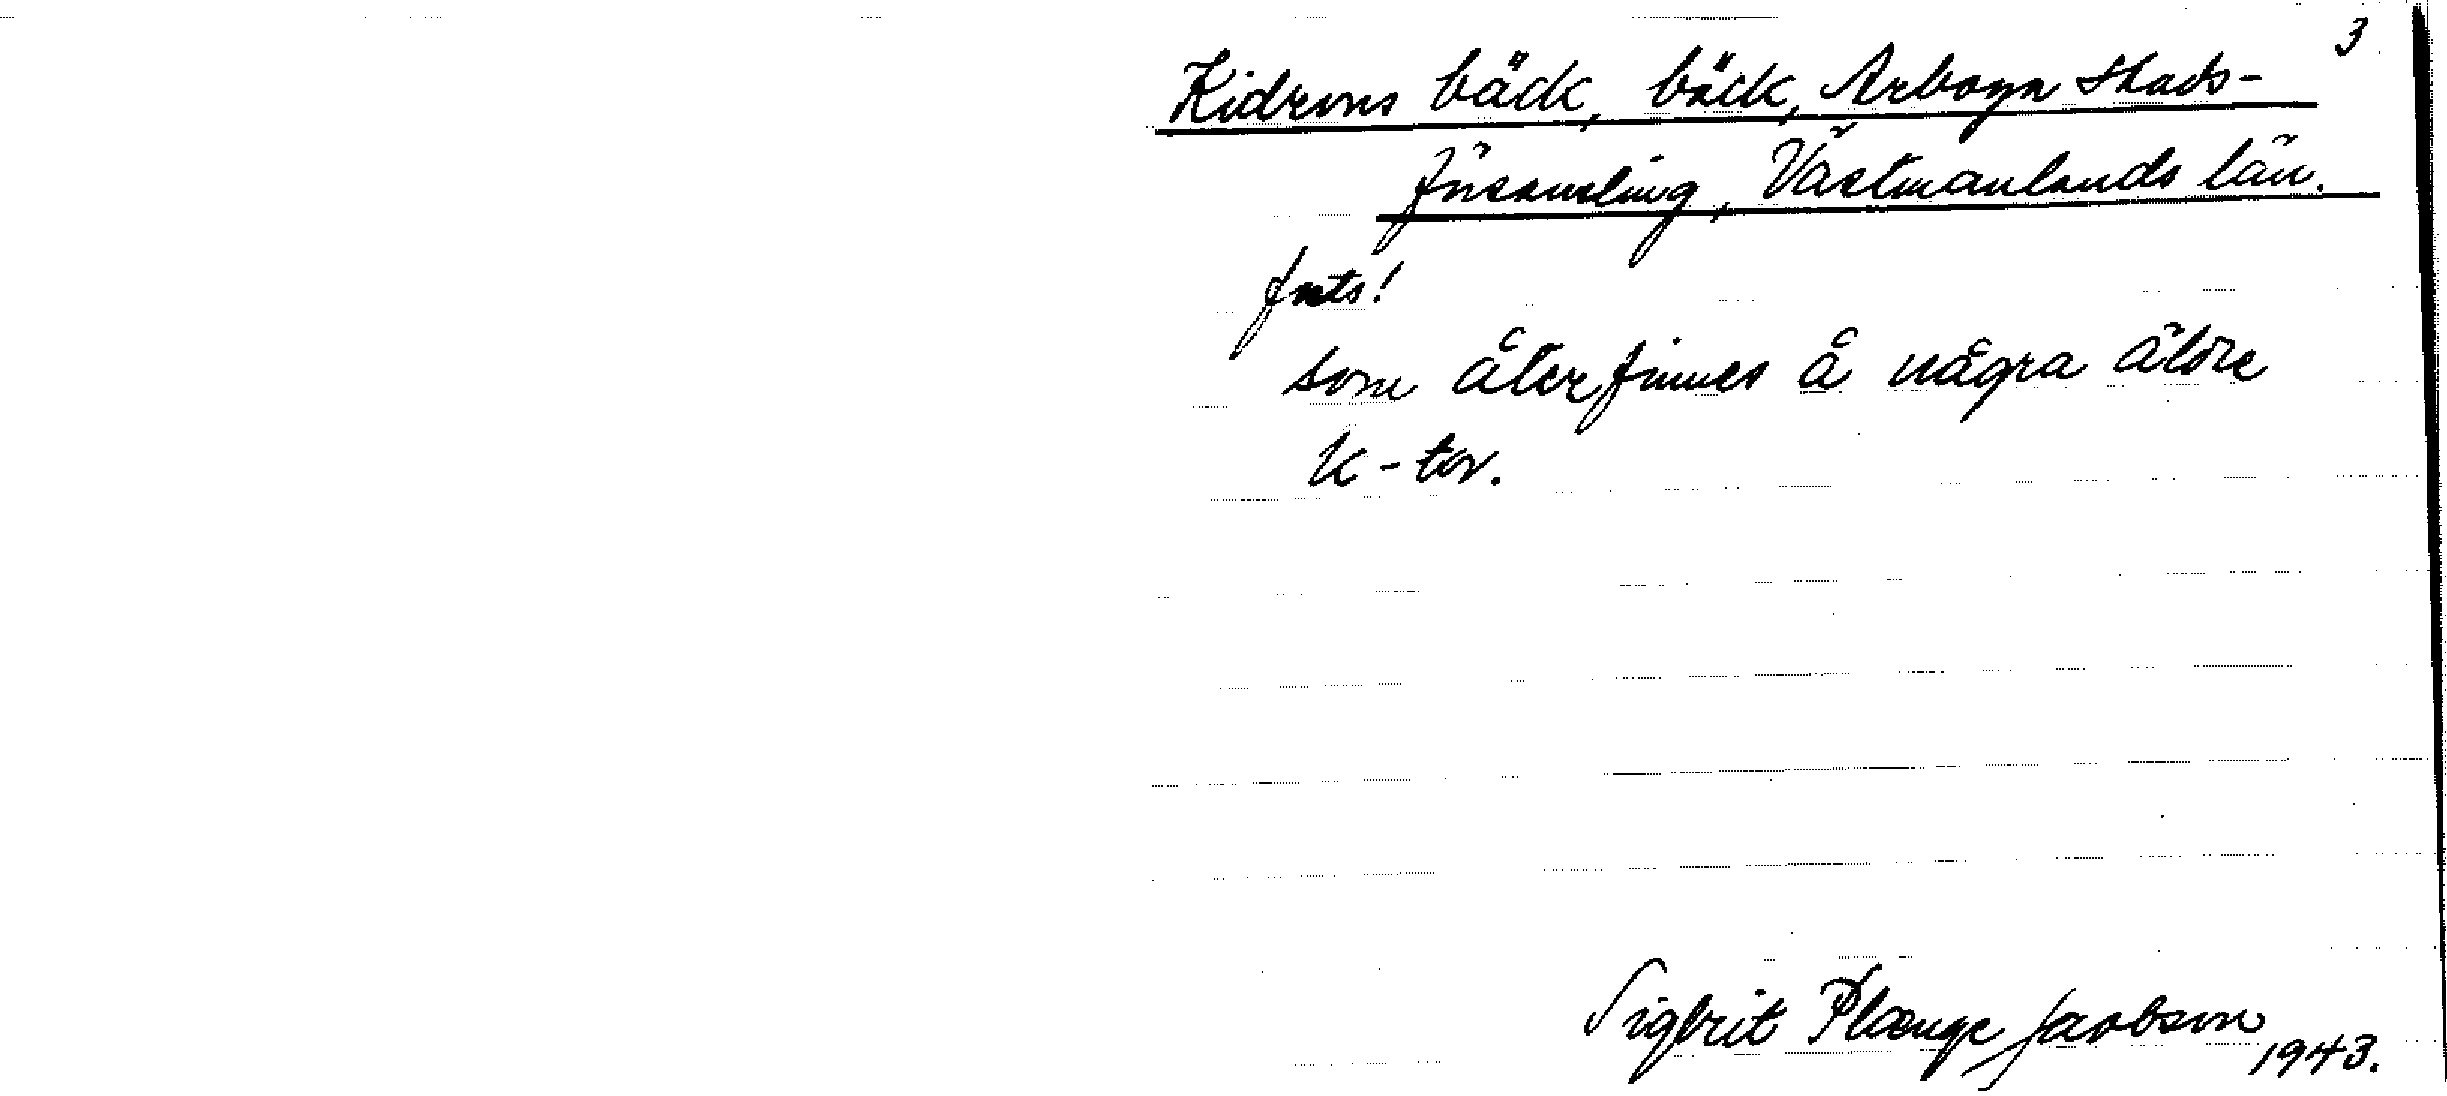 3
Kidrons bäck, bäck, Arboga stads-
församling, Västmanlands län.
forts!
som återfinnes å några äldre
k-tor.
Sigbrit Plænge Jacobson
1943.